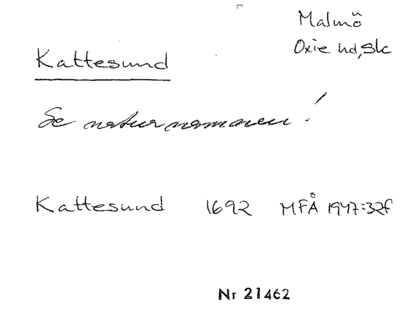 Malmö
Oxie hd, Sk
Kattesund
Se naturnamnen!
Kattesund 1692 MFÅ 1947:32f
Nr 21462